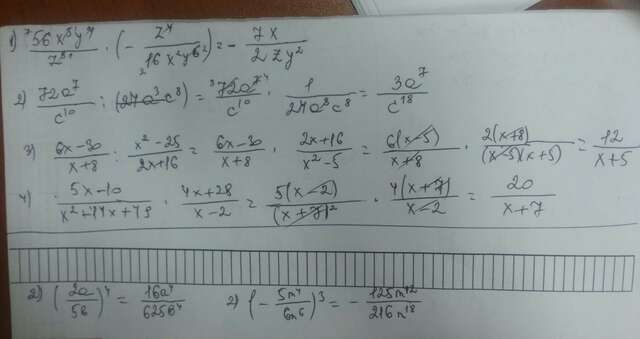 1) ⁷56x³y⁴/z⁵ · (− z⁴/₂16x²y⁶) = − 7x/2zy²
2) 72a⁷/c¹⁰ : (24a³c⁸) = ³72a⁷/c¹⁰ · 1/24a³c⁸ = 3a⁷/c¹⁸
3) 6x−30/x+8 : x²−25/2x+16 = 6x−30/x+8 · 2x+16/x²−5 = 6(x−5)/x+8 · 2(x+8)/(x−5)(x+5) = 12/x+5
4) 5x−10/x²+14x+49 · 4x+28/x−2 = 5(x−2)/(x+7)² · 4(x+7)/x−2 = 20/x+7
2) (2a/5b)⁴ = 16a⁴/625b⁴ 2) (− 5m⁴/6n⁶)³ = − 125m¹²/216n¹⁸